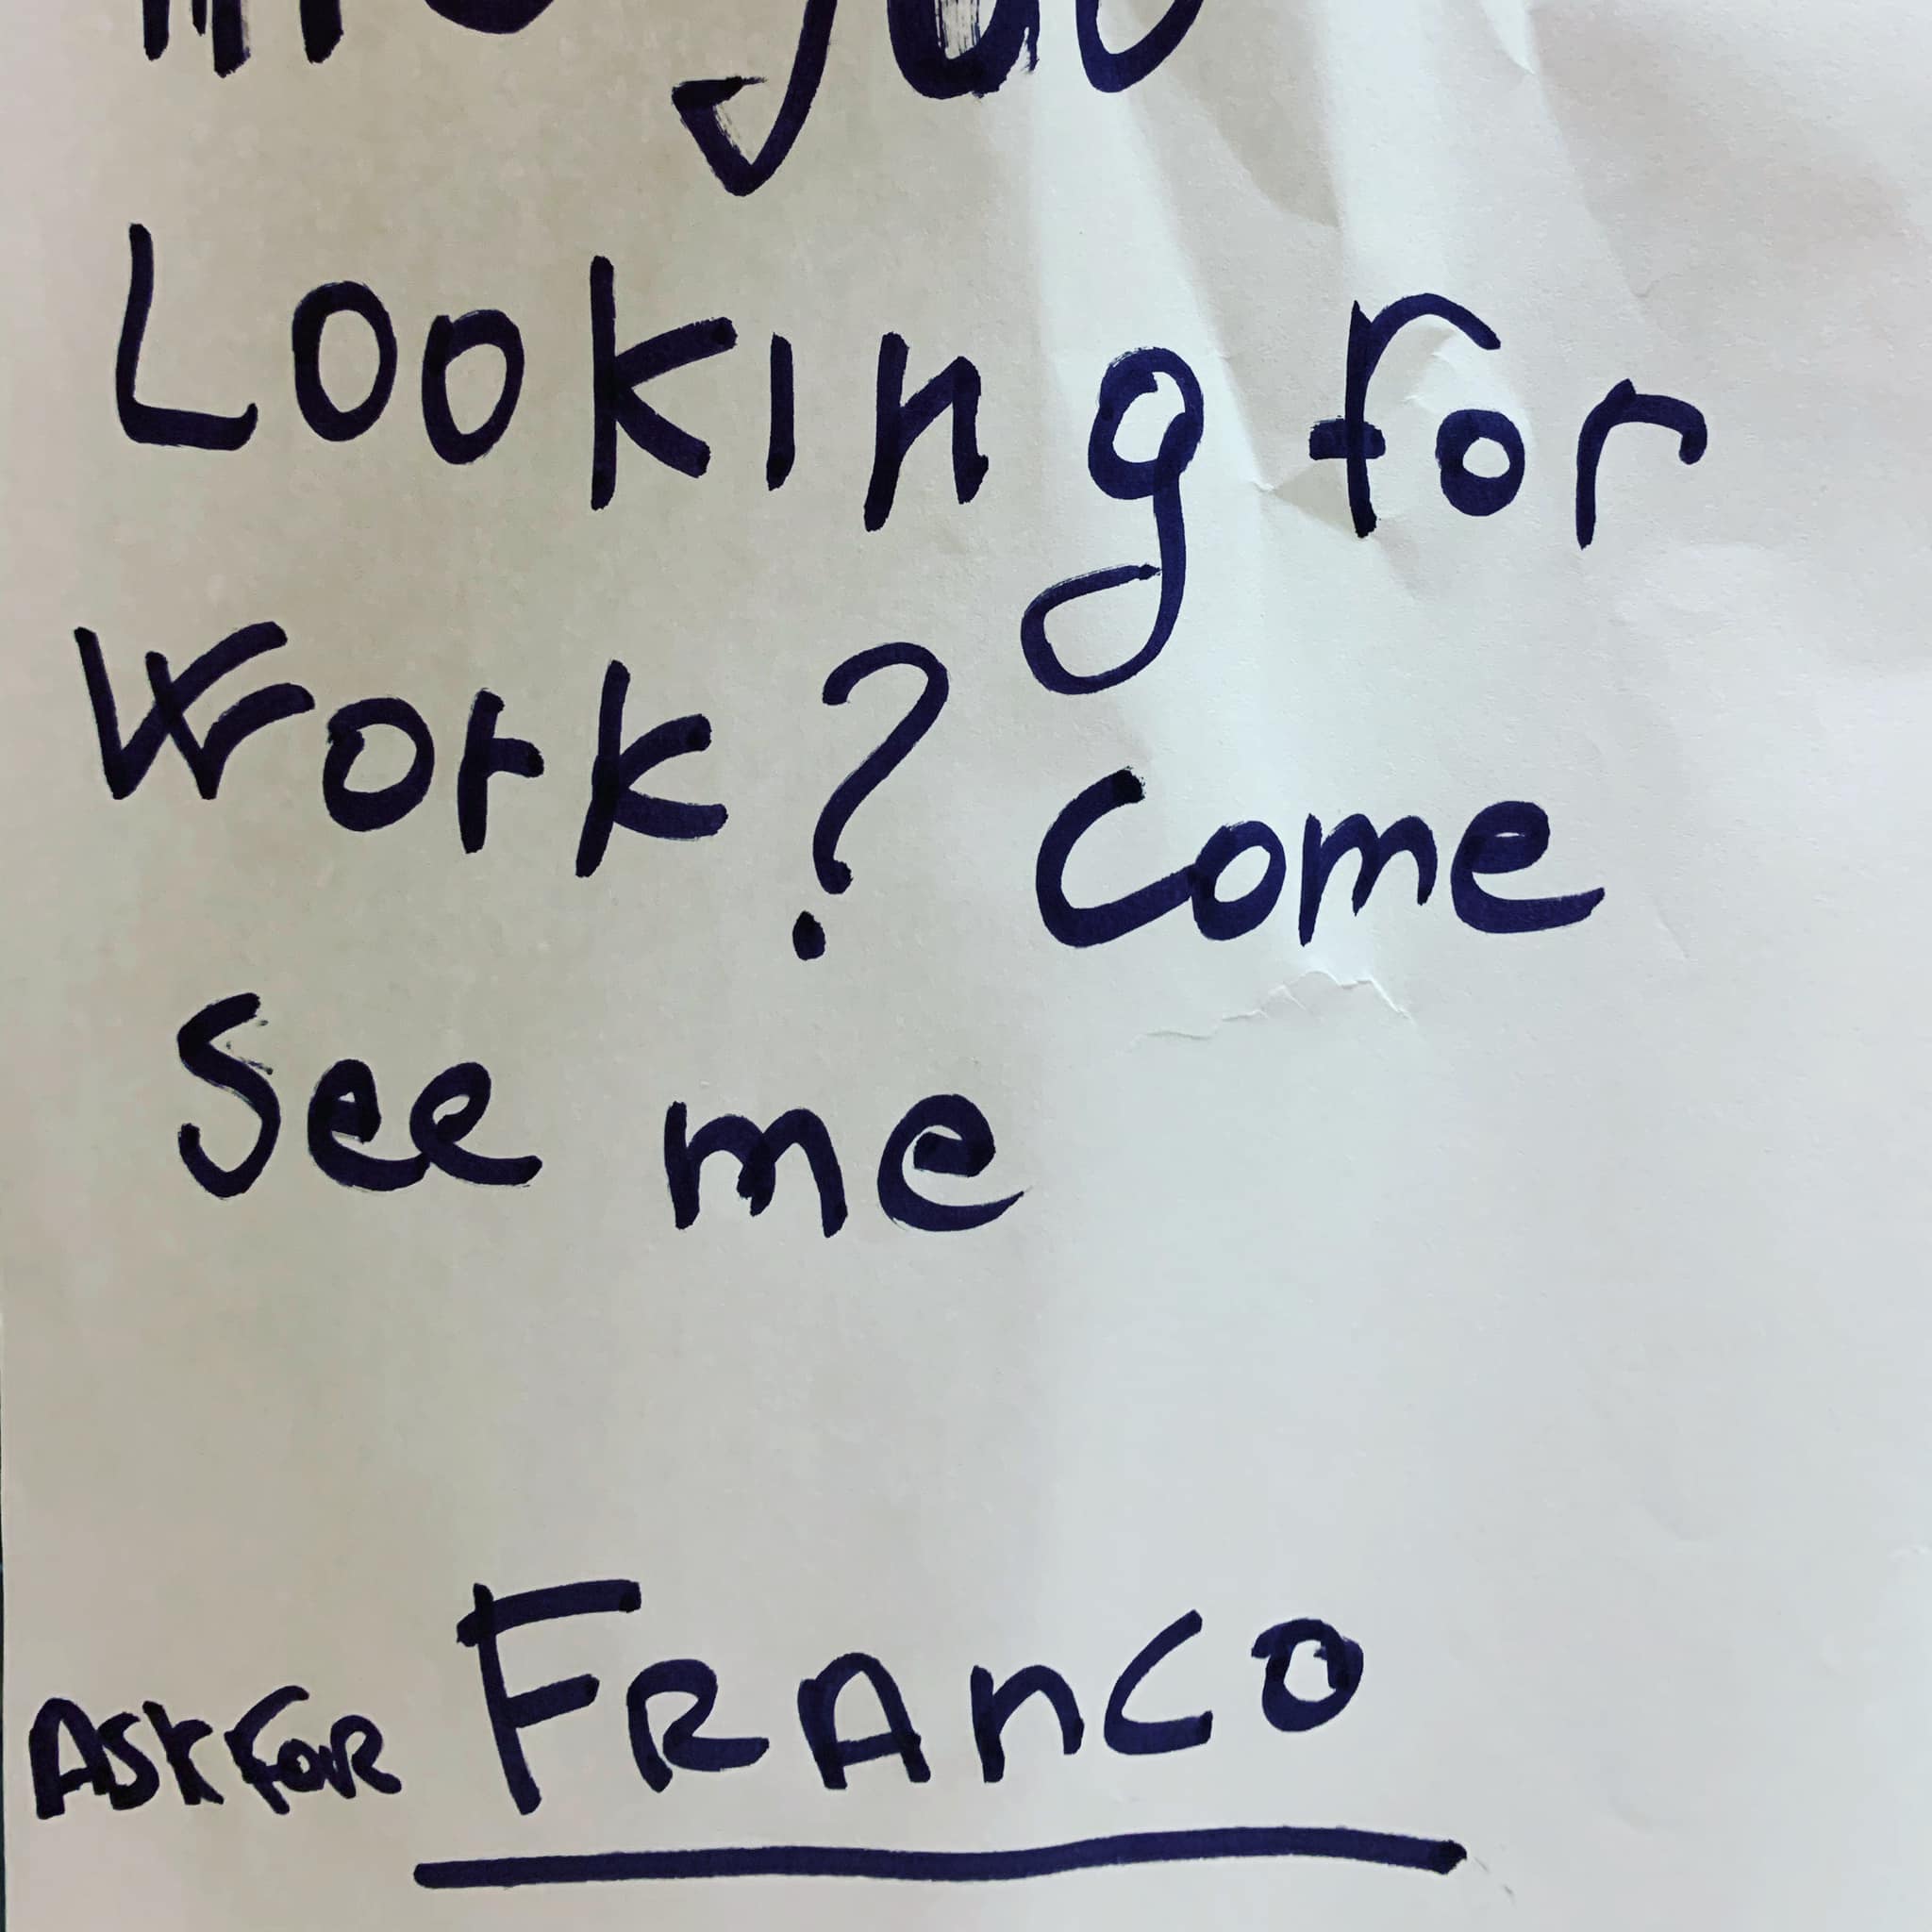 you
Looking for
Work? Come
See me
Ask For FRAnCO